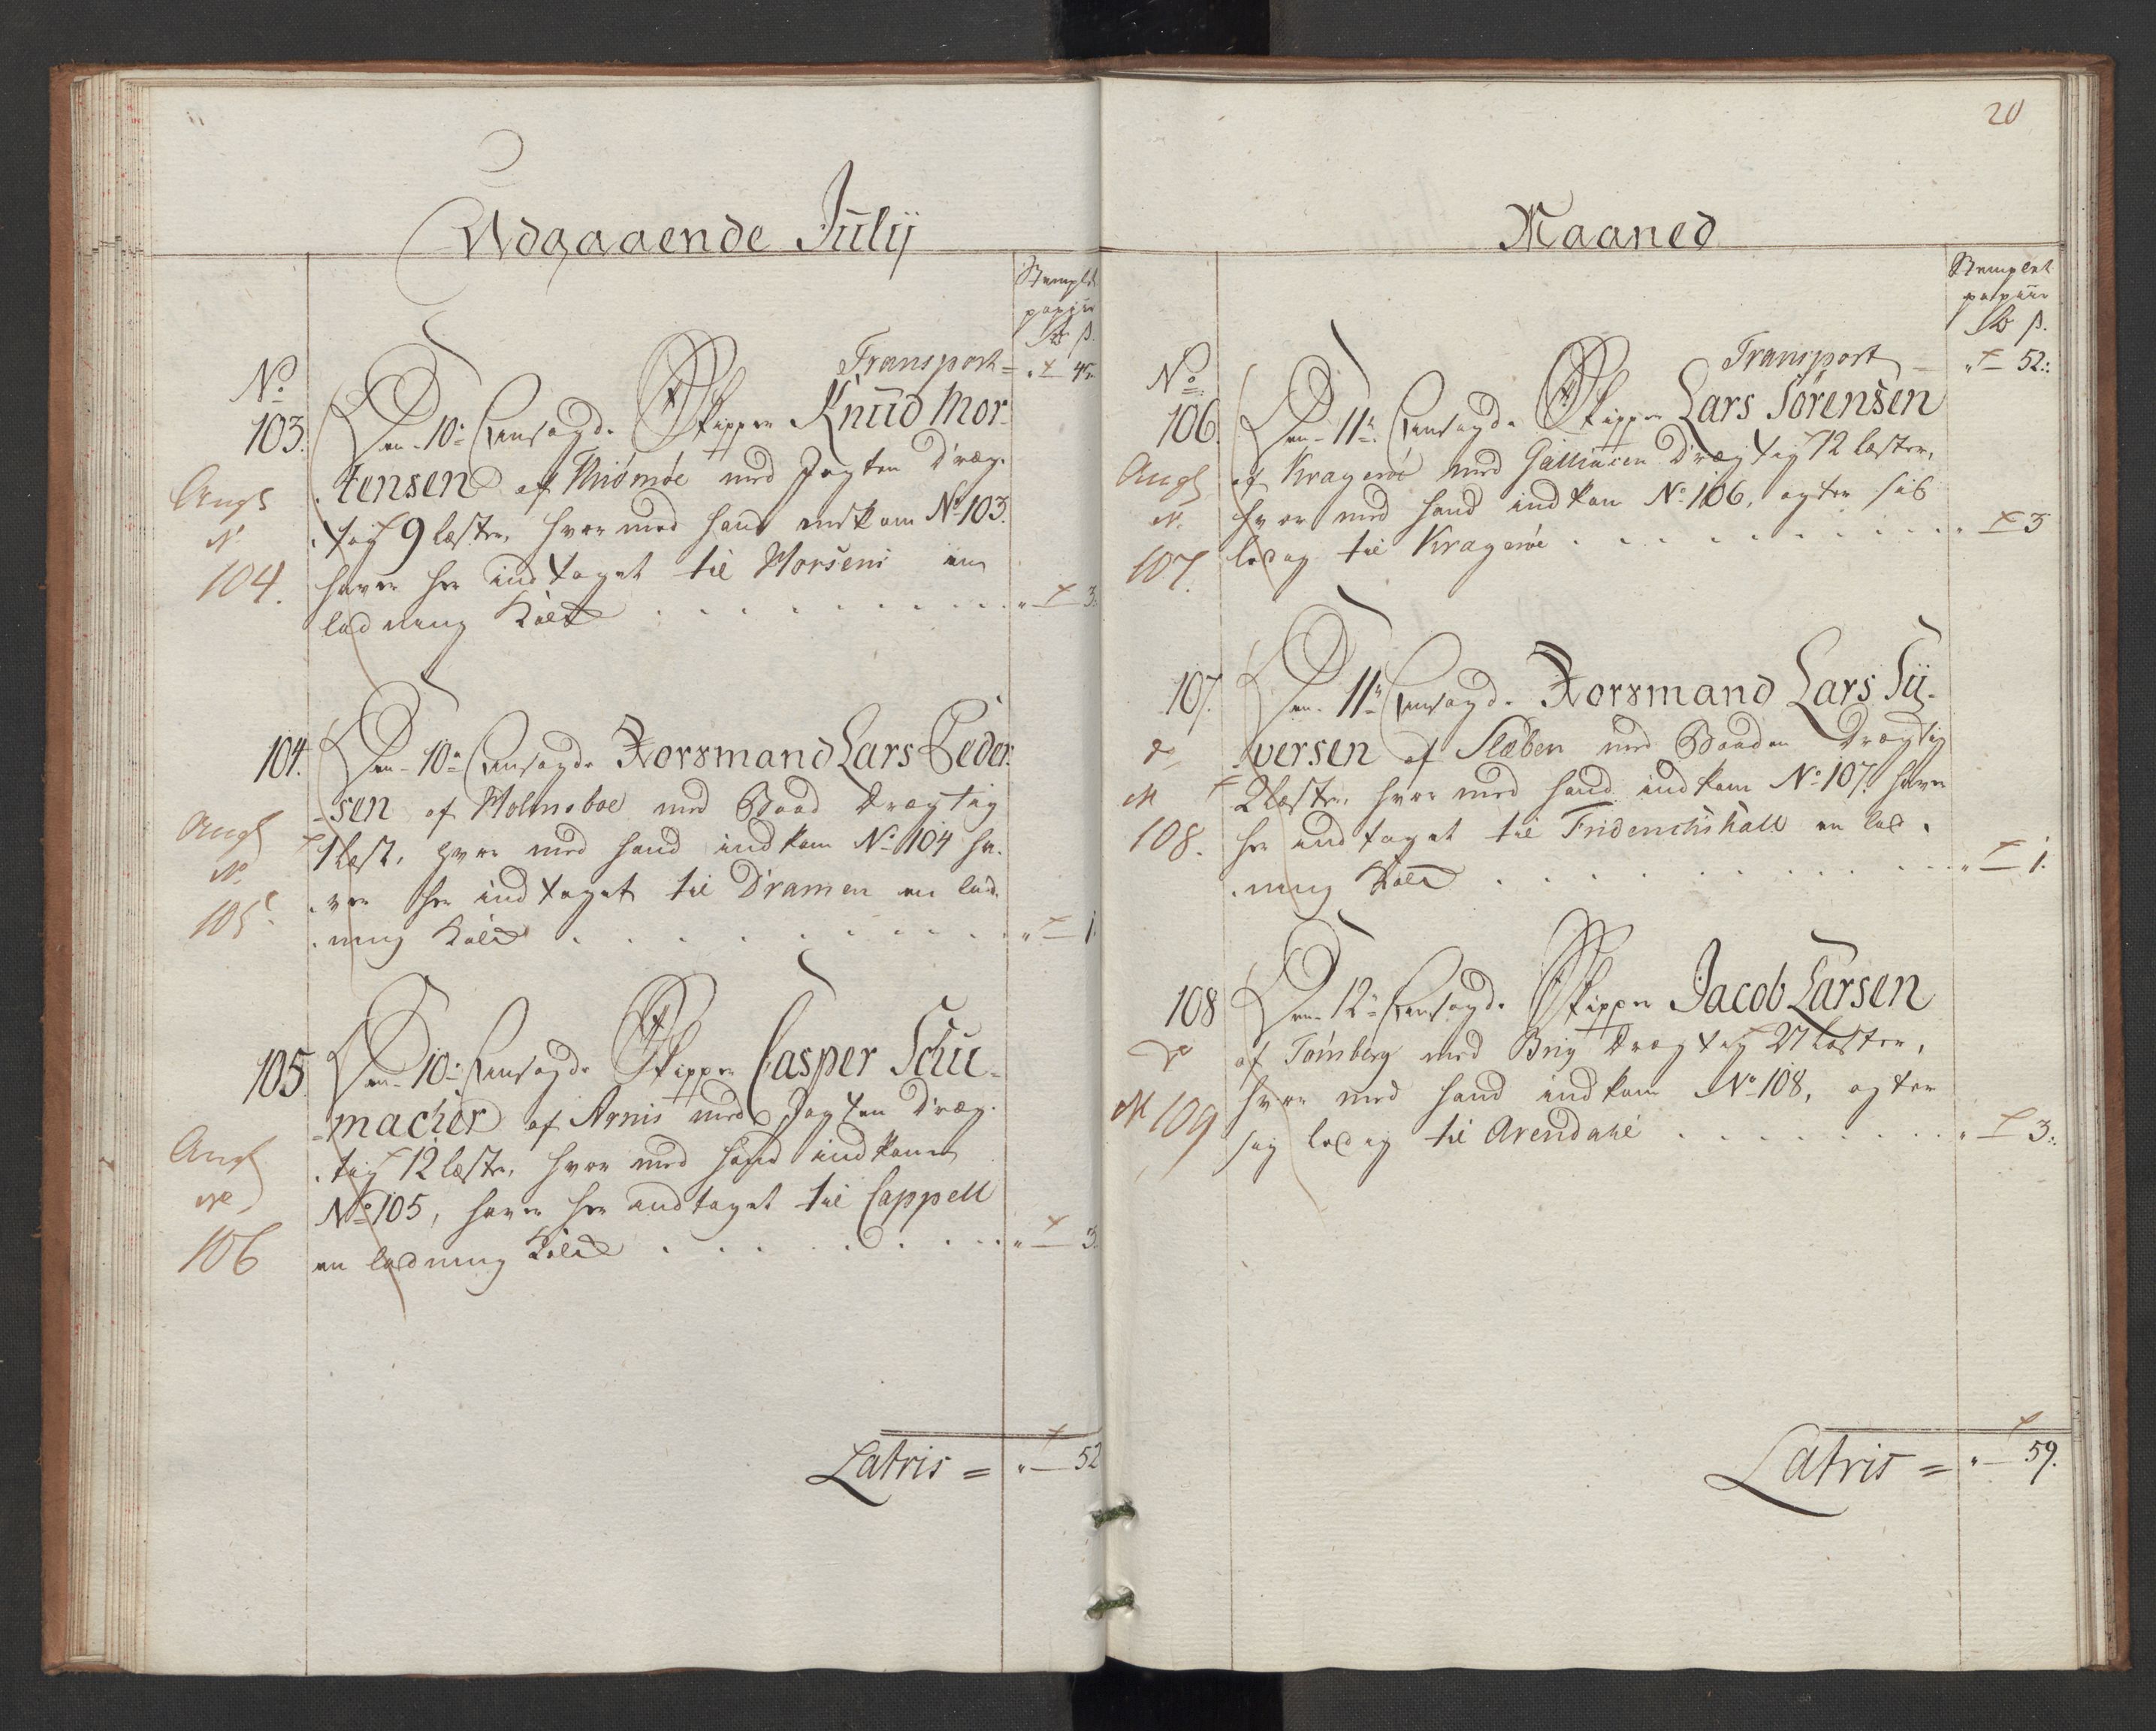 Udgaaende Julij
Stemplet
papiir
β.
Transport = " 45.
No
103.
Den 10de Ansagde Skipper Knud Mor-
tensen af Thiømøe med Jagten Dræg-
tig 9 læster, hvormed hand indkom No 103.
haver her indtaget til Horsens en
ladning Kalk . . . . . . . . . " 3.
Angl
No
104.
104. Den 10de Ansagde Norsmand Lars Peder-
sen af Holmsboe med Baad Drægtig
1 læst, hvormed hand indkom No 104 ha-
ver her indtaget til Dramen en lad-
ning Kalk . . . . . . . . . " 1.
Angl
No
105.
105. Den 10de Ansagde Skipper Casper Schu-
macher af Arnis med Jagten Dræg-
tig 12 læster, hvormed hand indkom
No 105, haver her indtaget til Cappell
en ladning Kalk . . . . . . . " 3.
Angl
No
106
Latris = " 52
20
Maaned
Stemplet
papiir
β.
Transport = " 52.
No
106. Den 11te Ansagde Skipper Lars Sørensen
af Kragerøe med Galliasen Drægtig 12 læster,
hvormed hand indkom No 106, agter sig
ledig til Kragerøe . . . . . . . . " 3
Angl
No
107.
107. Den 11te Ansagde Norsmand Lars Sy-
versen af Sleben med Baaden Drægtig
2 læster, hvormed hand indkom No 107, haver
her indtaget til Friderichshall en lad-
ning Kalk . . . . . . . . . . " 1.
No
108.
108 Den 12te Ansagde Skipper Jacob Larsen
af Tønsberg med Brig Drægtig 27 læster,
hvormed hand indkom No 108, agter
sig ledig til Arendahl . . . . . . . " 3.
No 109
Latris = " 59.